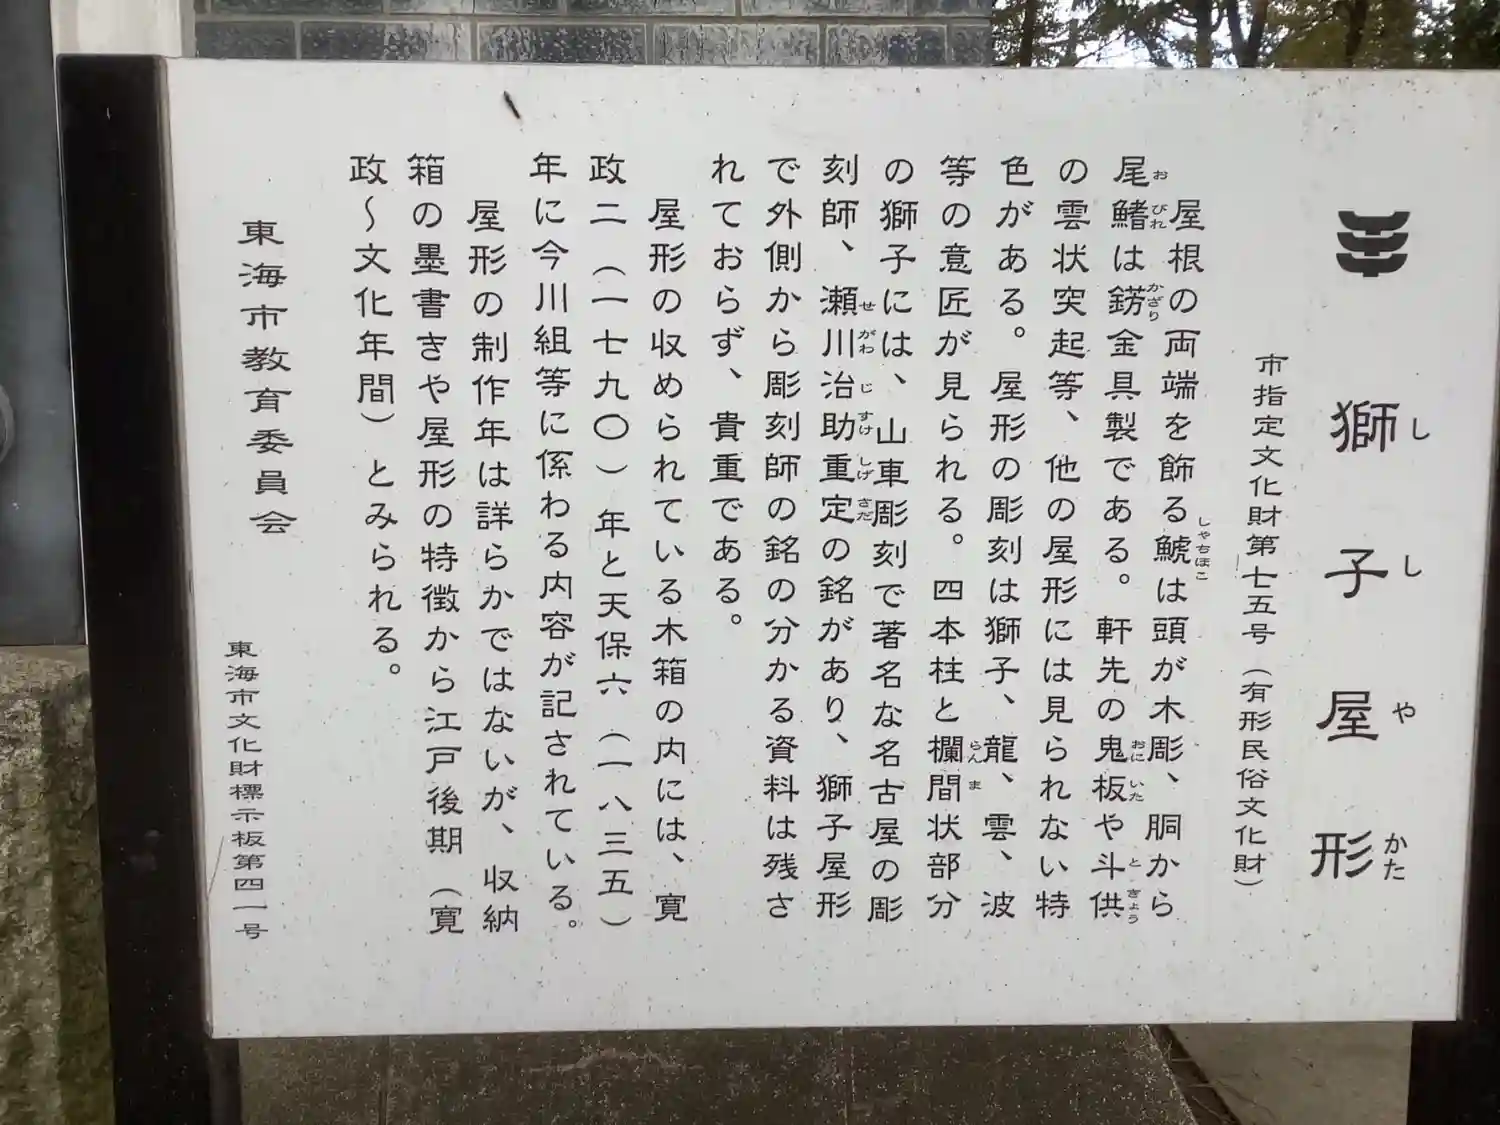 獅子屋形
しし や かた
市指定文化財第七五号（有形民俗文化財）
屋根の両端を飾る鯱は頭が木彫、胴から
しゃちほこ
尾鰭は錺金具製である。軒先の鬼板や斗供
おびれ かざり おにいた ときょう
の雲状突起等、他の屋形には見られない特
色がある。屋形の彫刻は獅子、龍、雲、波
等の意匠が見られる。四本柱と欄間状部分
らんま
の獅子には、山車彫刻で著名な名古屋の彫
刻師、瀬川治助重定の銘があり、獅子屋形
せがわ じすけしげさだ
で外側から彫刻師の銘の分かる資料は残さ
れておらず、貴重である。
屋形の収められている木箱の内には、寛
政二（一七九〇）年と天保六（一八三五）
年に今川組等に係わる内容が記されている。
屋形の制作年は詳らかではないが、収納
箱の墨書きや屋形の特徴から江戸後期（寛
政～文化年間）とみられる。
東海市教育委員会
東海市文化財標示板第四一号